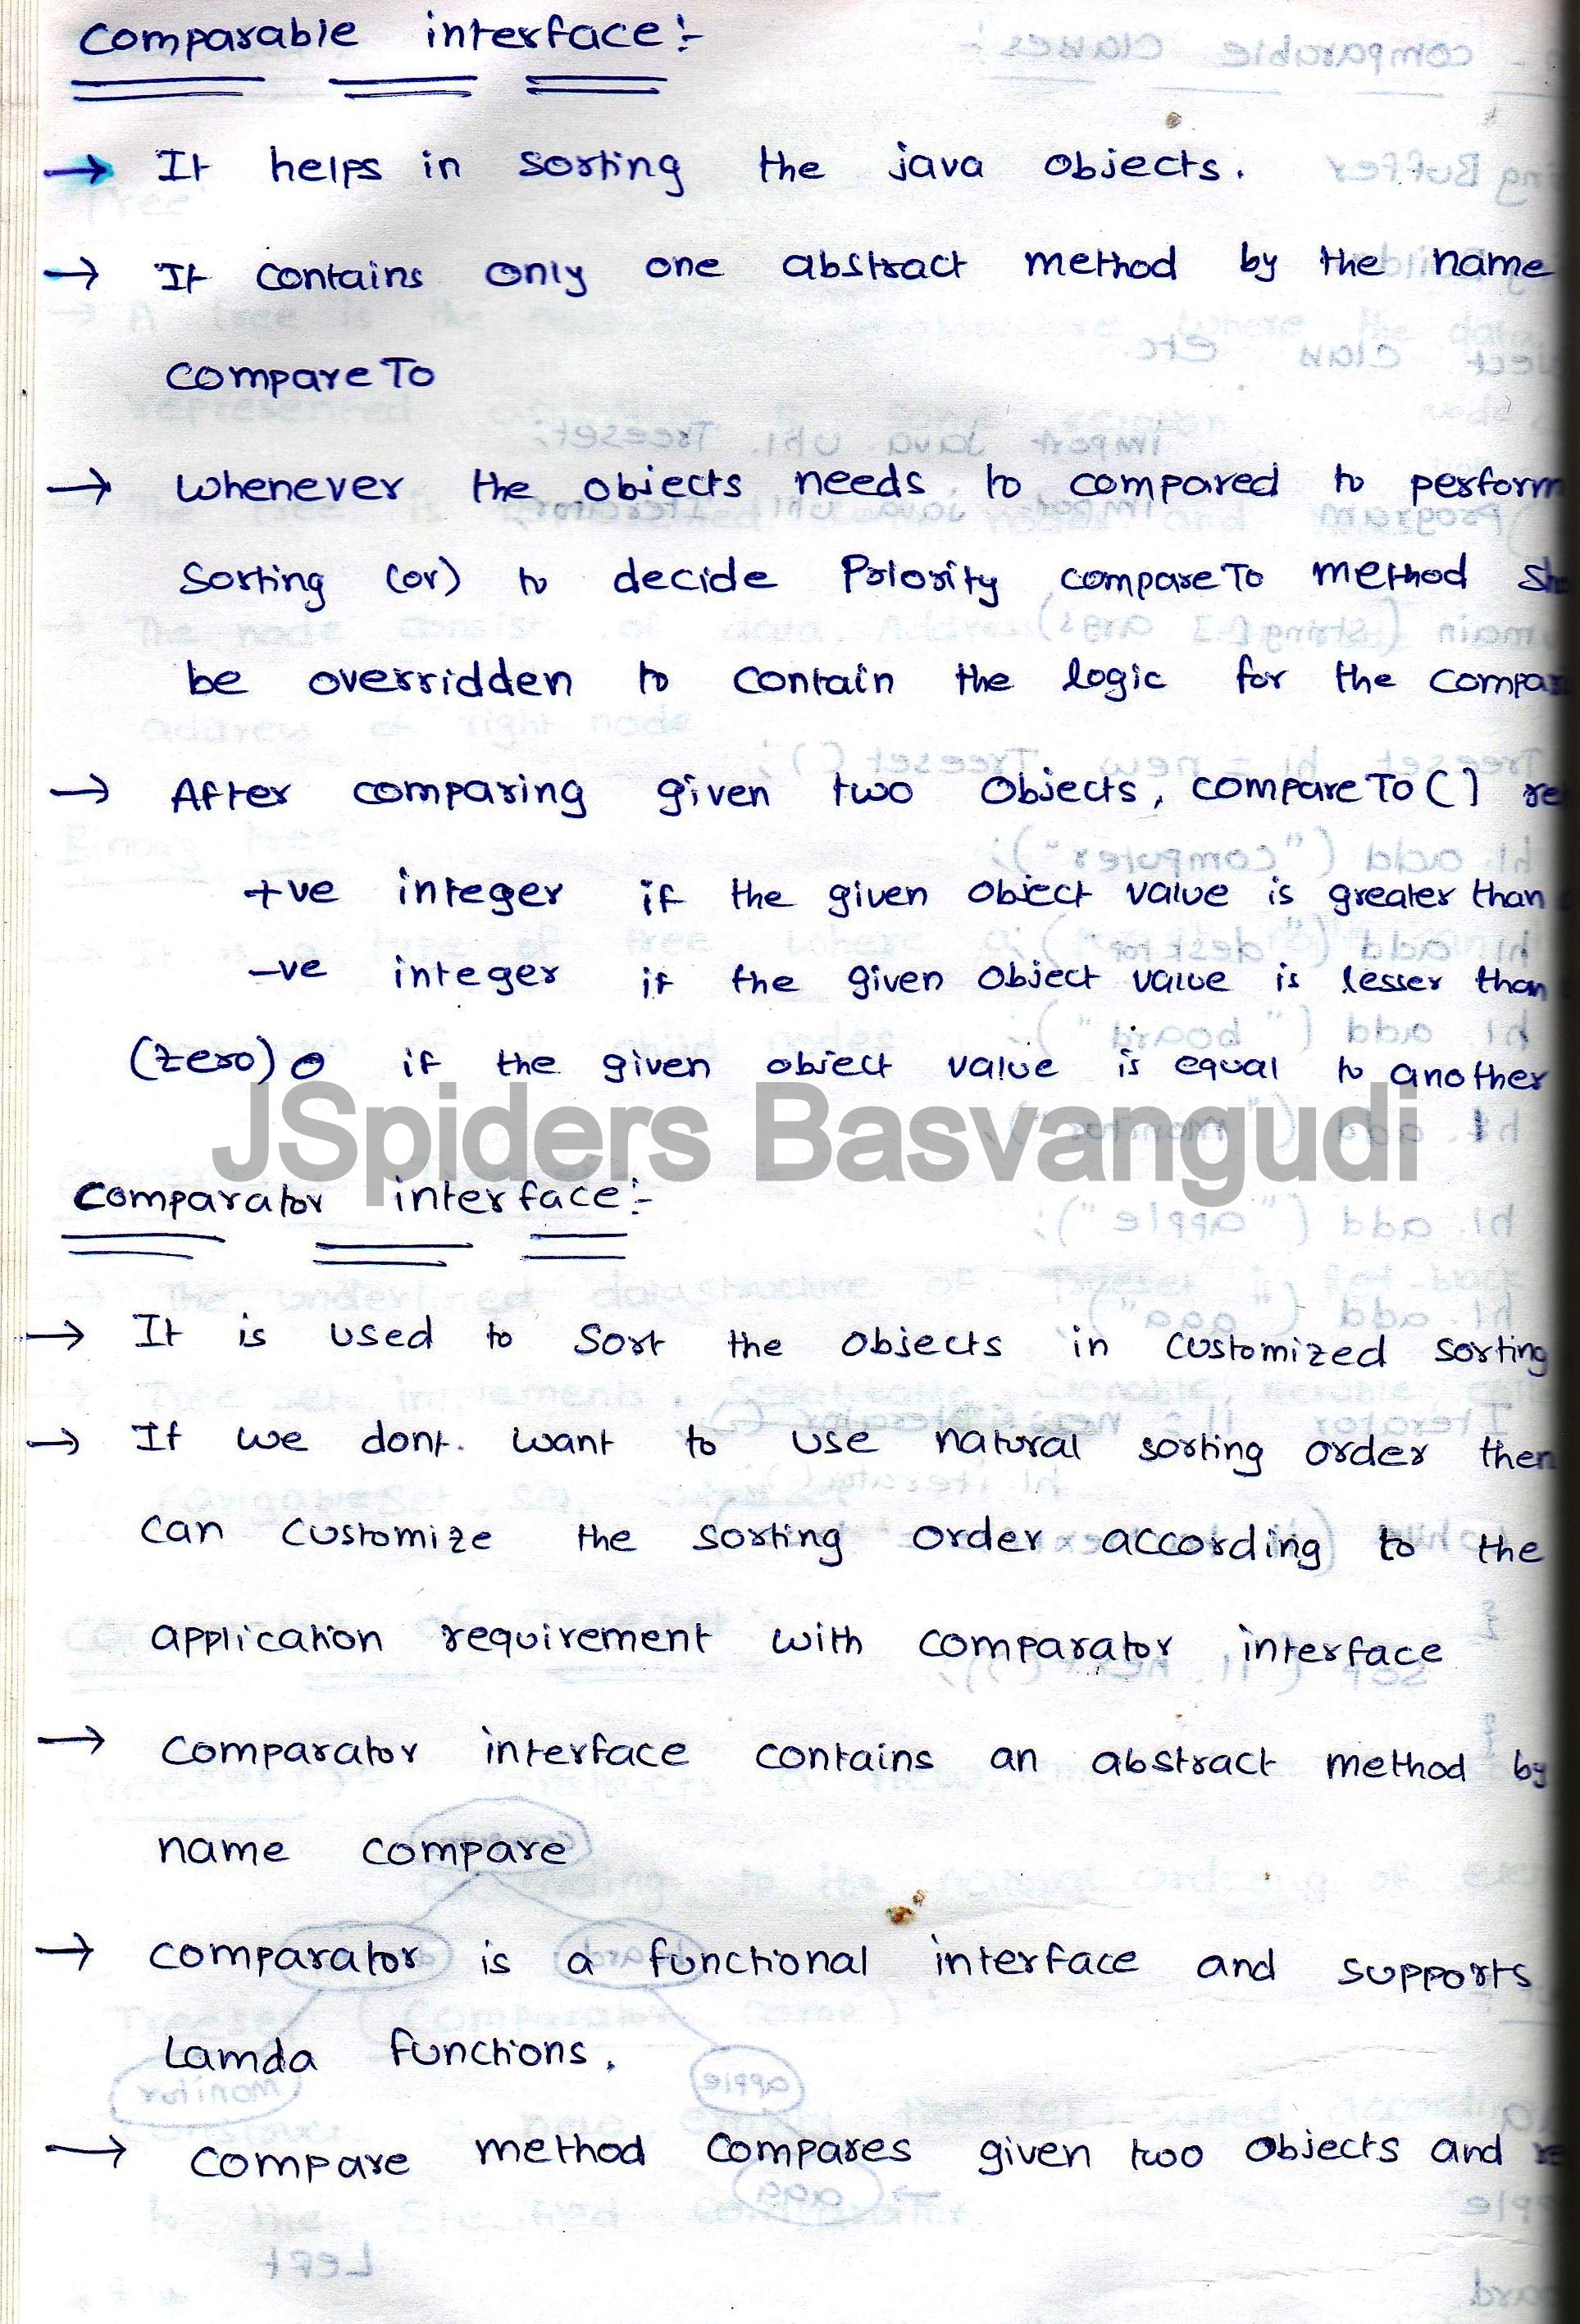 Comparable interface:-
→ It helps in sorting the java objects.
→ It contains only one abstract method by the name
compareTo
→ whenever the objects needs to compared to perform
sorting (or) to decide Priority compareTo method
be overridden to contain the logic for the
→ After comparing given two objects, compareTo()
+ve integer if the given object value is greater than
-ve integer if the given object value is lesser than
(zero) 0 if the given object value is equal to another
JSpiders Basvangudi
Comparator interface:-
→ It is used to sort the objects in customized sorting
→ If we dont want to use natural sorting order then
can customize the sorting order according to the
application requirement with comparator interface
→ Comparator interface contains an abstract method by
name compare
→ Comparator is a functional interface and supports
Lamda functions.
→ compare method compares given two objects and